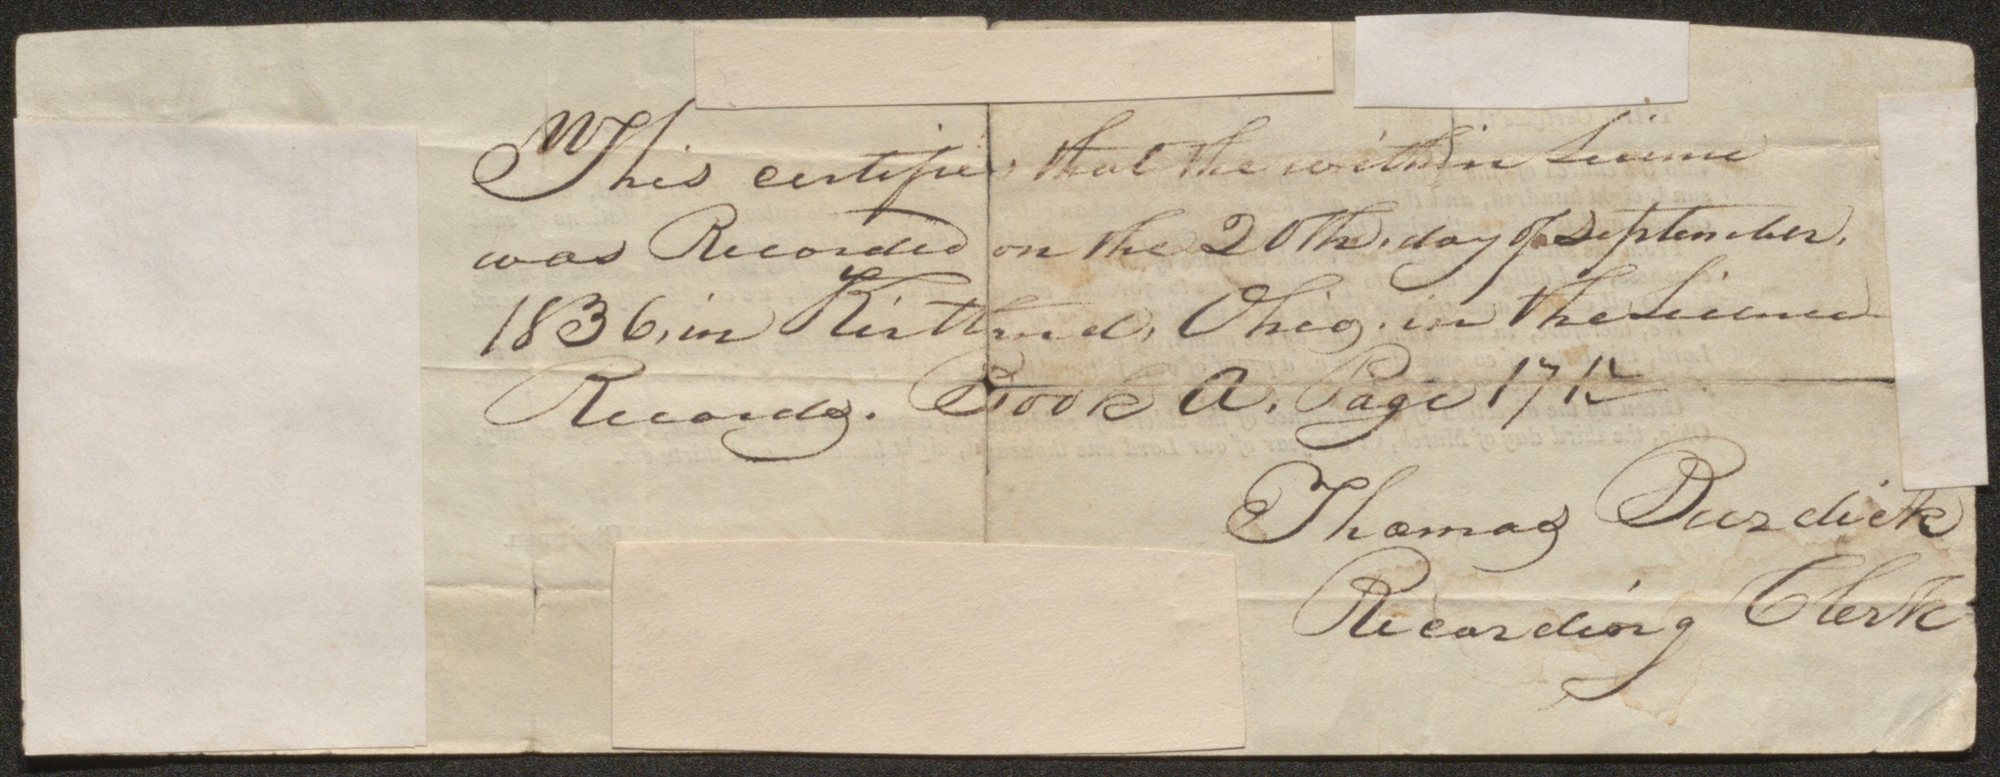 This certifies that the within Licence
was Recorded on the 20th. day of September.
1836, in Kirtland, Ohio, in the Licence
Records. Book A. Page
Thomas Burdick
Recording Clerk